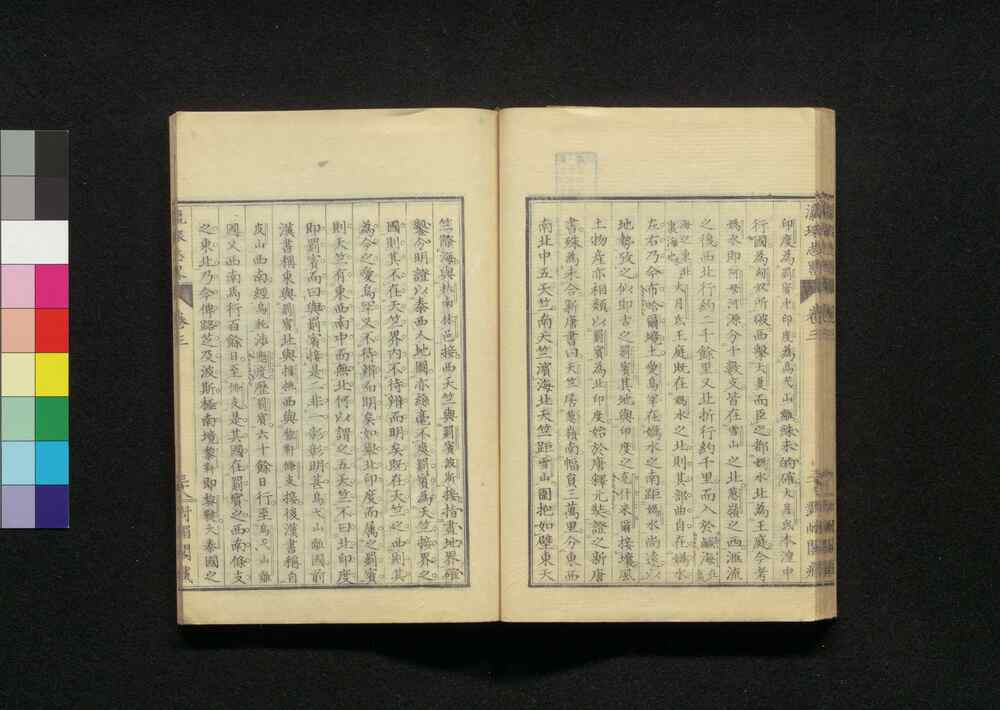 瀛環志畧 卷三
印度為罽賓中印度為烏弋山離殊未的確大月氏本湟中
行國為匈奴所破西擊大夏而臣之都媯水北為王庭今考
媯水即阿母河源分十數支皆在雪山之北葱嶺之西滙流
之後西北行約二千餘里又北折行約千里而入於鹹海
大月氏王庭既在媯水之北則其部曲自在媯水
左右乃今布哈爾境土愛烏罕在媯水之南距媯水尚遠以
地勢攷之似即古之罽賓其地與印度之克什米爾接壤風
土物產亦相類以罽賓為北印度始於唐釋元奘證之新唐
書殊為未合新唐書曰天竺居葱嶺南幅員三萬里分東西
南北中五天竺南天竺濱海北天竺距雪山圜抱如壁東天
竺際海與扶南林邑接西天竺與罽賓波斯接指畫地界確
鑿分明證以泰西人地圖亦絲毫不爽罽賓為天竺接界之
國則其不在天竺界內不待辨而明矣既在天竺之西則其
為今之愛烏罕又不待辨而明矣如舉北印度而屬之罽賓
則天竺有東西南中而無北何以謂之五天竺不曰北印度
即罽賓而曰與罽賓接是二非一彰彰明甚烏弋山離國前
漢書稱東與罽賓北與撲挑西與犂軒條支接後漢書稱自
皮山西南經烏秅涉懸度歷罽賓六十餘日行至烏弋山離
國又西南馬行百餘日至條支是其國在罽賓之西南條支
之東北乃今俾路芝及波斯極南境犂軒即犂鞬大秦國之
卷三